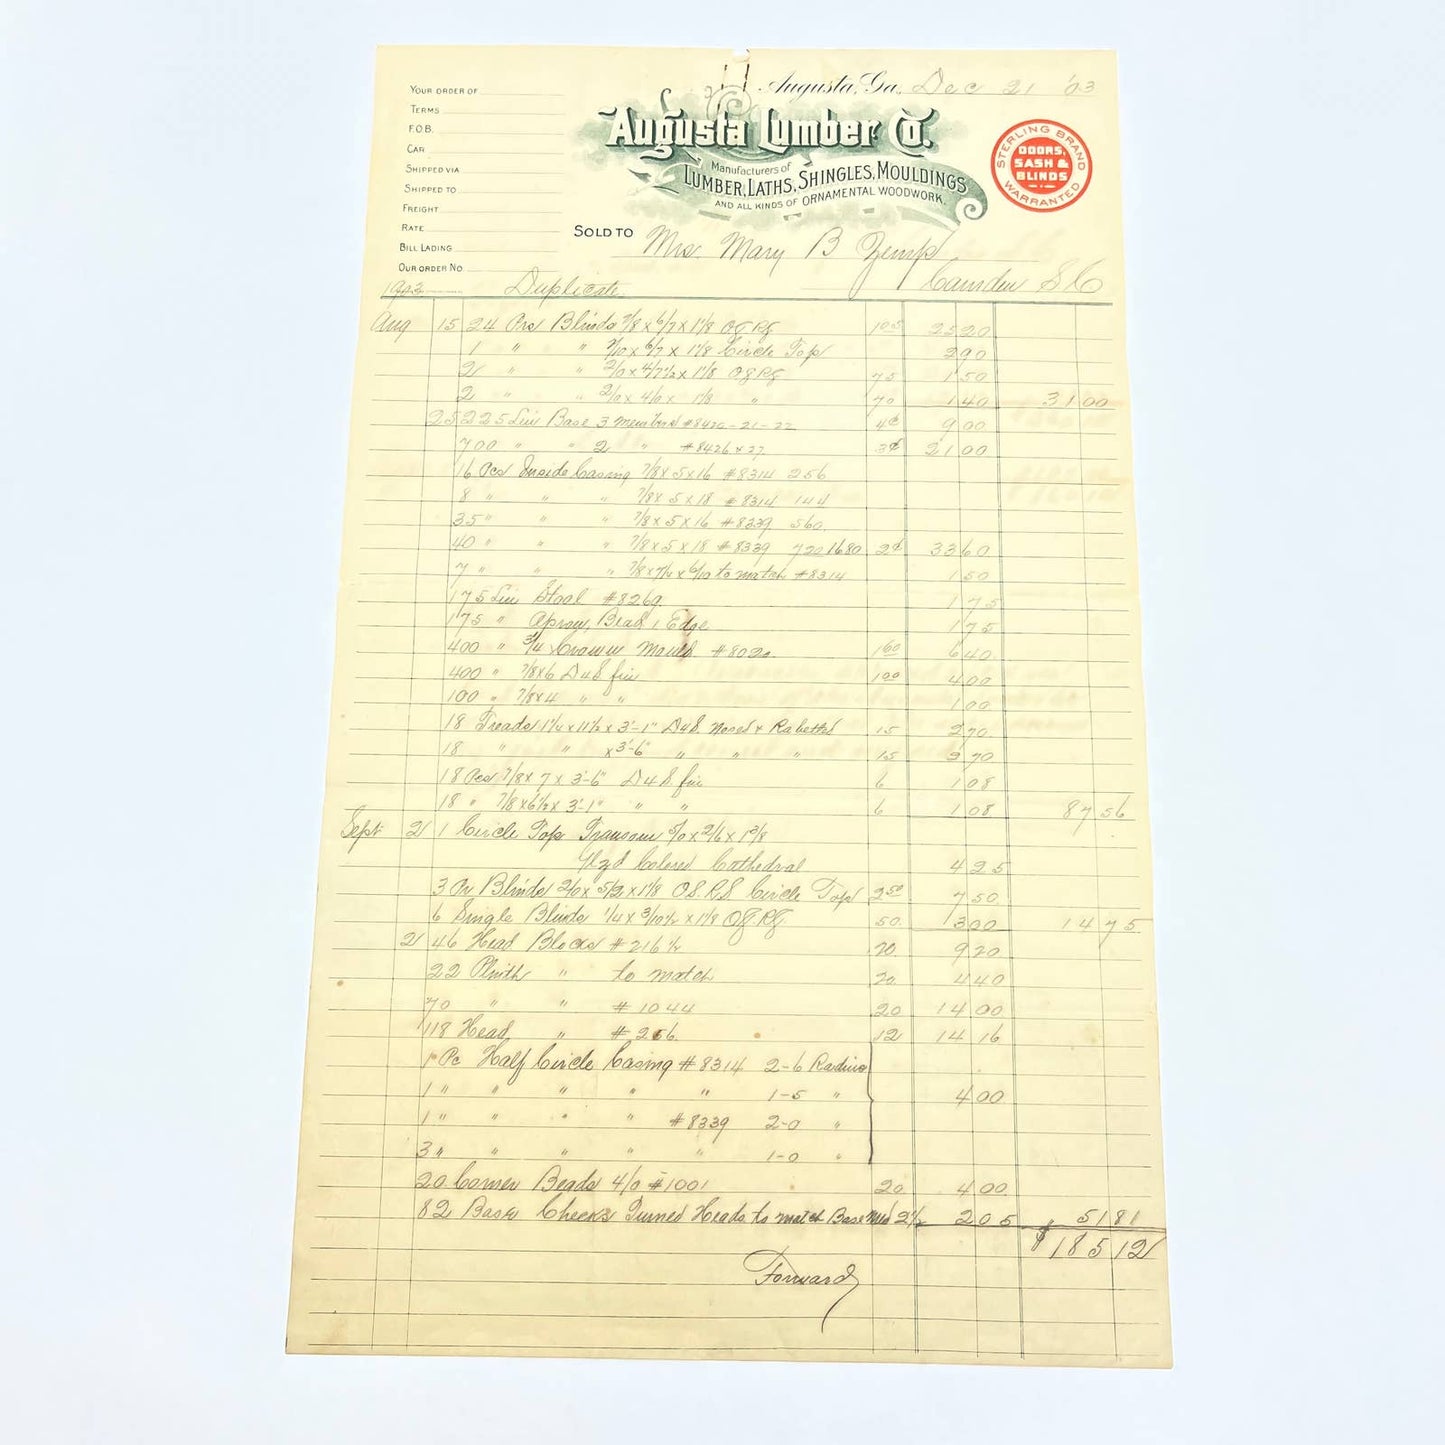 Augusta, Ga. Dec 21 '03
YOUR ORDER OF
TERMS
F.O.B.
CAR
SHIPPED VIA
SHIPPED TO
FREIGHT
RATE
BILL LADING
OUR ORDER NO.
Augusta Lumber Co.
Manufacturers of
LUMBER, LATHS, SHINGLES, MOULDINGS
AND ALL KINDS OF ORNAMENTAL WOODWORK.
STERLING BRAND
DOORS,
SASH &
BLINDS
WARRANTED
SOLD TO Mrs. Mary B Zemp
Camden S C
1903 Duplicate
Aug 15 24 Prs Blinds 2/8 x 6/7 x 1 1/8 OG RG 1 05 25 20
1 " " x 6/7 x 1 1/8 Circle Top 2 90
2 " " 2/0 x 4/7 1/2 x 1 1/8 OG RG 75 1 50
2 " " 2/0 x 4/0 x 1 1/8 " 70 1 40 31 00
25 225 Lin Base 3 members #8420-21-22 4¢ 9 00
700 " " 2 " #8426 x 27 3¢ 21 00
16 Pcs Inside Casing 7/8 x 5 x 16 #8314 256
8 " " " 7/8 x 5 x 18 #8314 144
35 " " " 7/8 x 5 x 16 #8339 560
40 " " " 7/8 x 5 x 18 #8339 720 1680 2¢ 33 60
7 " " " 7/8 x 7 1/2 x 6/10 to match #8314 1 50
175 Lin Stool #8269 1 75
175 " Apron, Bead 1 Edge 1 75
400 " 3/4 Crown Mould #8020 1 60 6 40
400 " 7/8 x 6 D4S fin 1 00 4 00
100 " 7/8 x 4 " " 1 00
18 Treads 1 1/4 x 11 1/2 x 3'-1" D4S Nosed & Rabetted 15 2 70
18 " " x 3'-6" " " " 15 2 70
18 Pcs 7/8 x 7 x 3'-6" D4S fin 6 1 08
18 " 7/8 x 6 1/2 x 3'-1" " " 6 1 08 87 56
Sept 2 1 Circle Top Transom 5/0 x 2/6 x 1 3/8
Glzd Colored Cathedral 4 25
3 Pr Blinds 2/0 x 5/2 x 1 1/8 O.S. R.S. Circle Top 2 50 7 50
6 Single Blinds 1/4 x 3/10 1/2 x 1 1/8 OG RG 50 3 00 14 75
2 46 Head Blocks #216 1/2 20 9 20
22 Plinth " to match 20 4 40
70 " " #1044 20 14 00
118 Head " #256 12 14 16
1 Pc Half Circle Casing #8314 2-6 Radius
1 " " " " " 1-5 " 4 00
1 " " " " #8339 2-0 "
3 " " " " " 1-0 "
20 Corner Beads 4/0 #1001 20 4 00
82 Base Checks Turned Heads to match Base Mld 2 1/2 2 05 51 81
$185 12
Forward